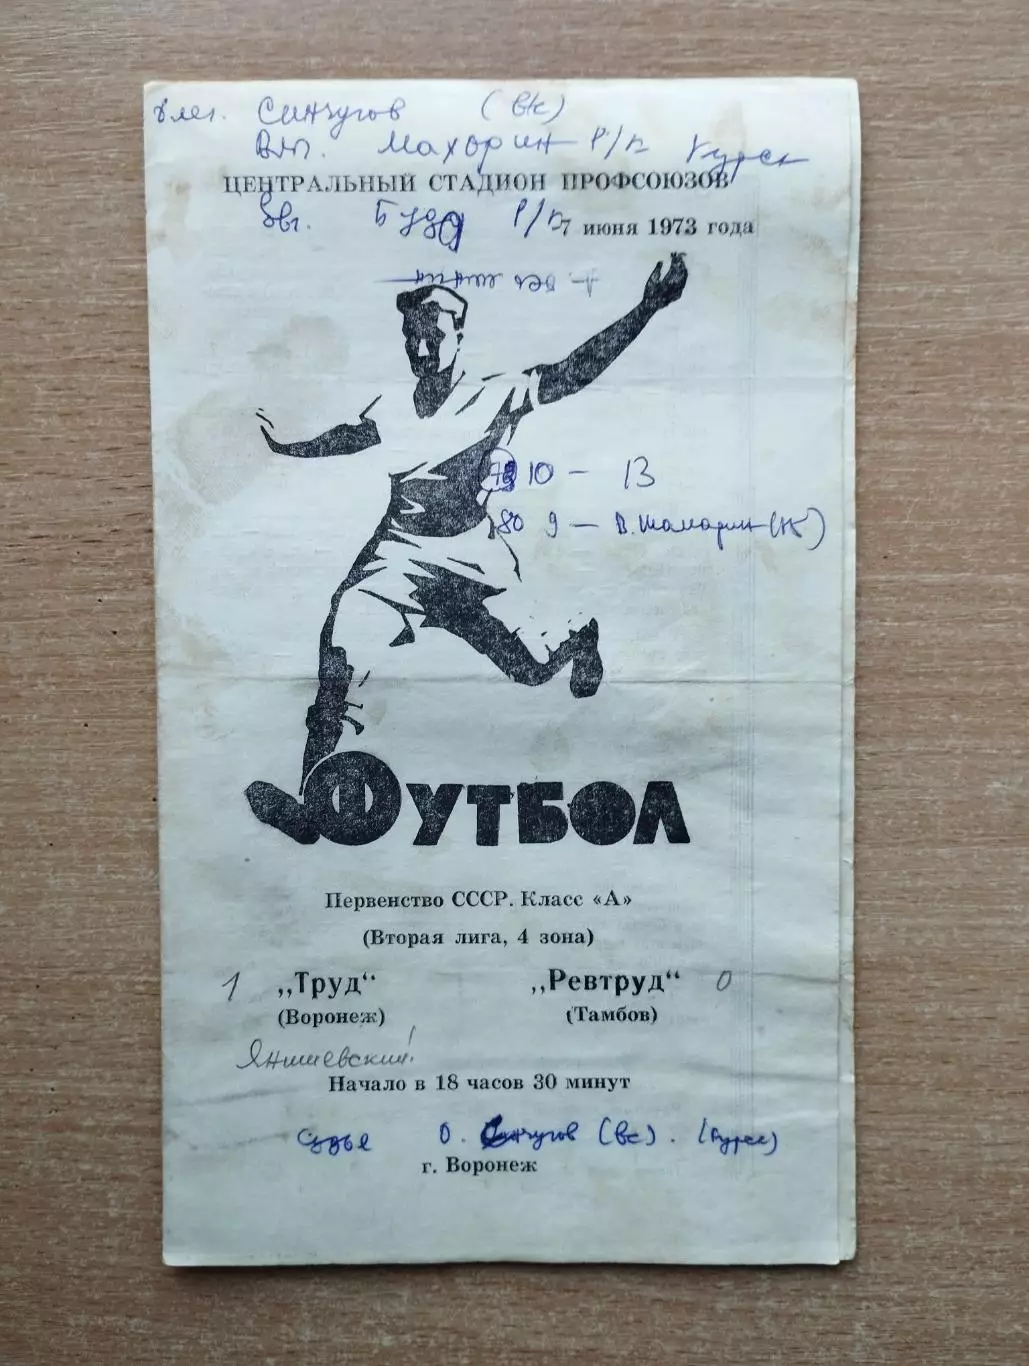 Синчугов (в/к)
Махорин Р/к Курск
ЦЕНТРАЛЬНЫЙ СТАДИОН ПРОФСОЮЗОВ
Р/к 7 июня 1973 года
10 — 13
80 9 — В. Шамарин (К)
ФУТБОЛ
Первенство СССР. Класс «А»
(Вторая лига, 4 зона)
1 „Труд“ „Ревтруд“ 0
(Воронеж) (Тамбов)
Янишевский!
Начало в 18 часов 30 минут
Судья О. Синчугов (вк). (Курск)
г. Воронеж